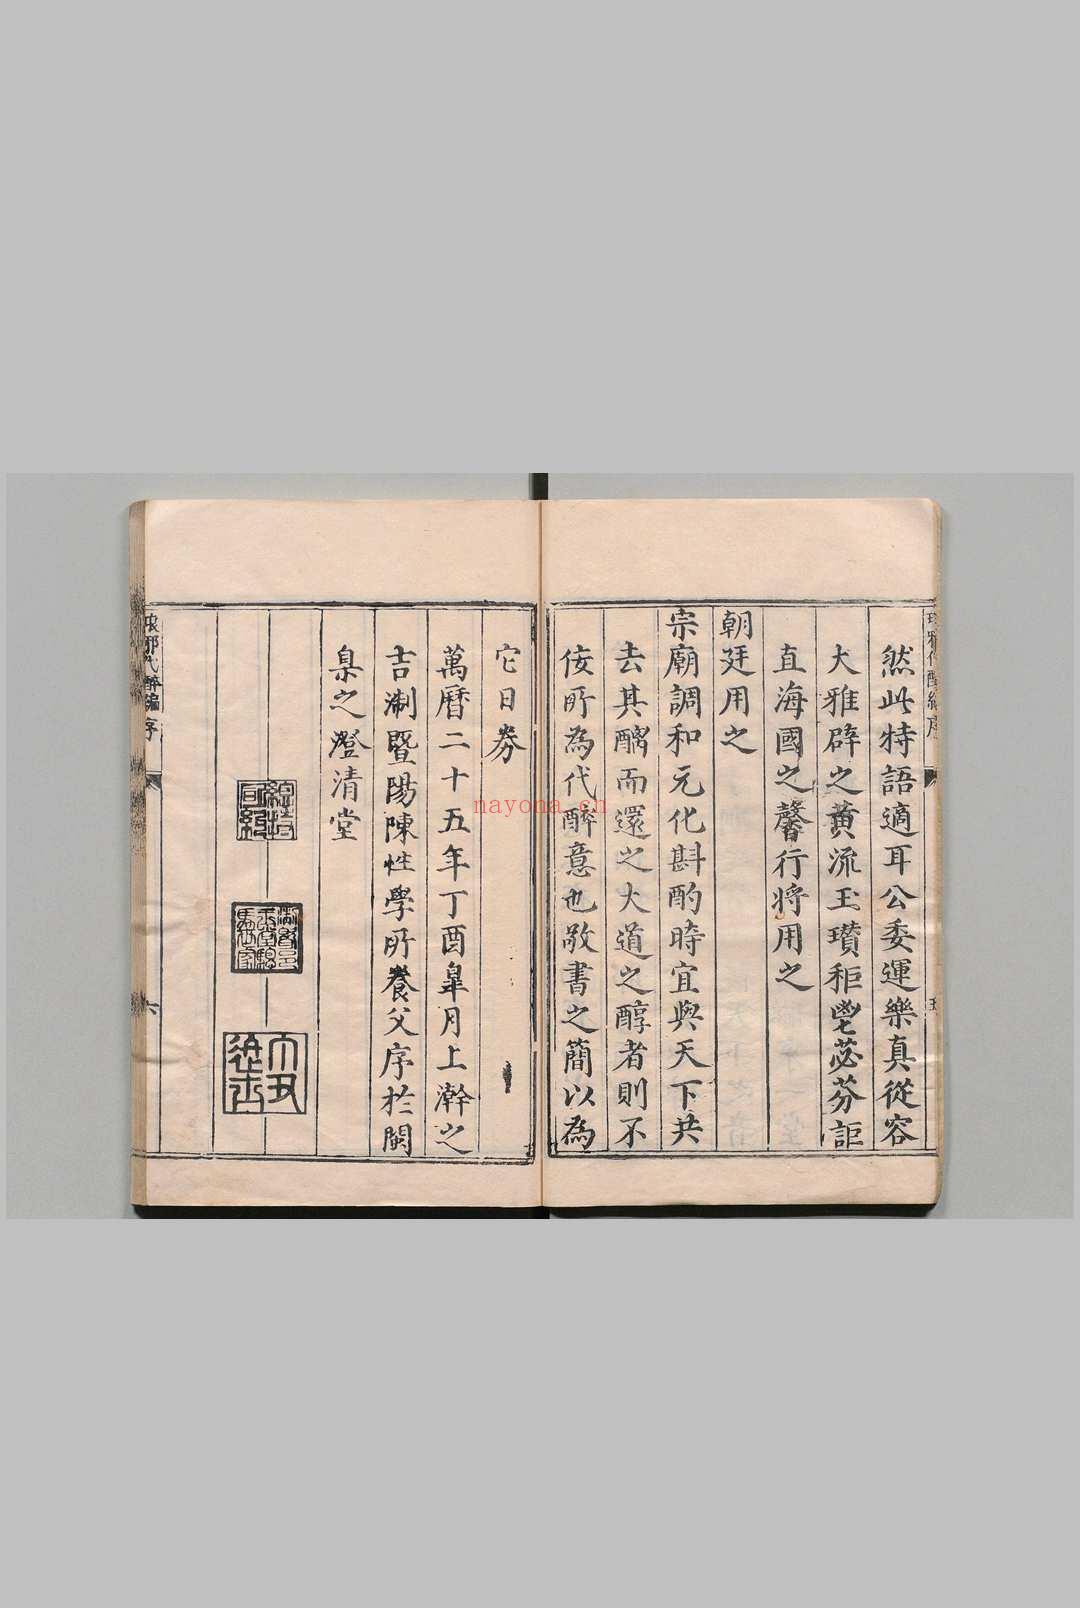 然此特語適耳公委運樂真從容
大雅辟之黃流玉瓚秬鬯苾芬詎
直海國之馨行將用之
朝廷用之
宗廟調和元化斟酌時宜與天下共
去其醨而還之大道之醇者則不
佞所為代醉意也敬書之簡以為
它日券
萬曆二十五年丁酉皐月上澣之
吉淛暨陽陳性學所養父序於閩
臬之澄清堂
琅邪代醉編序
六
nayona.cn